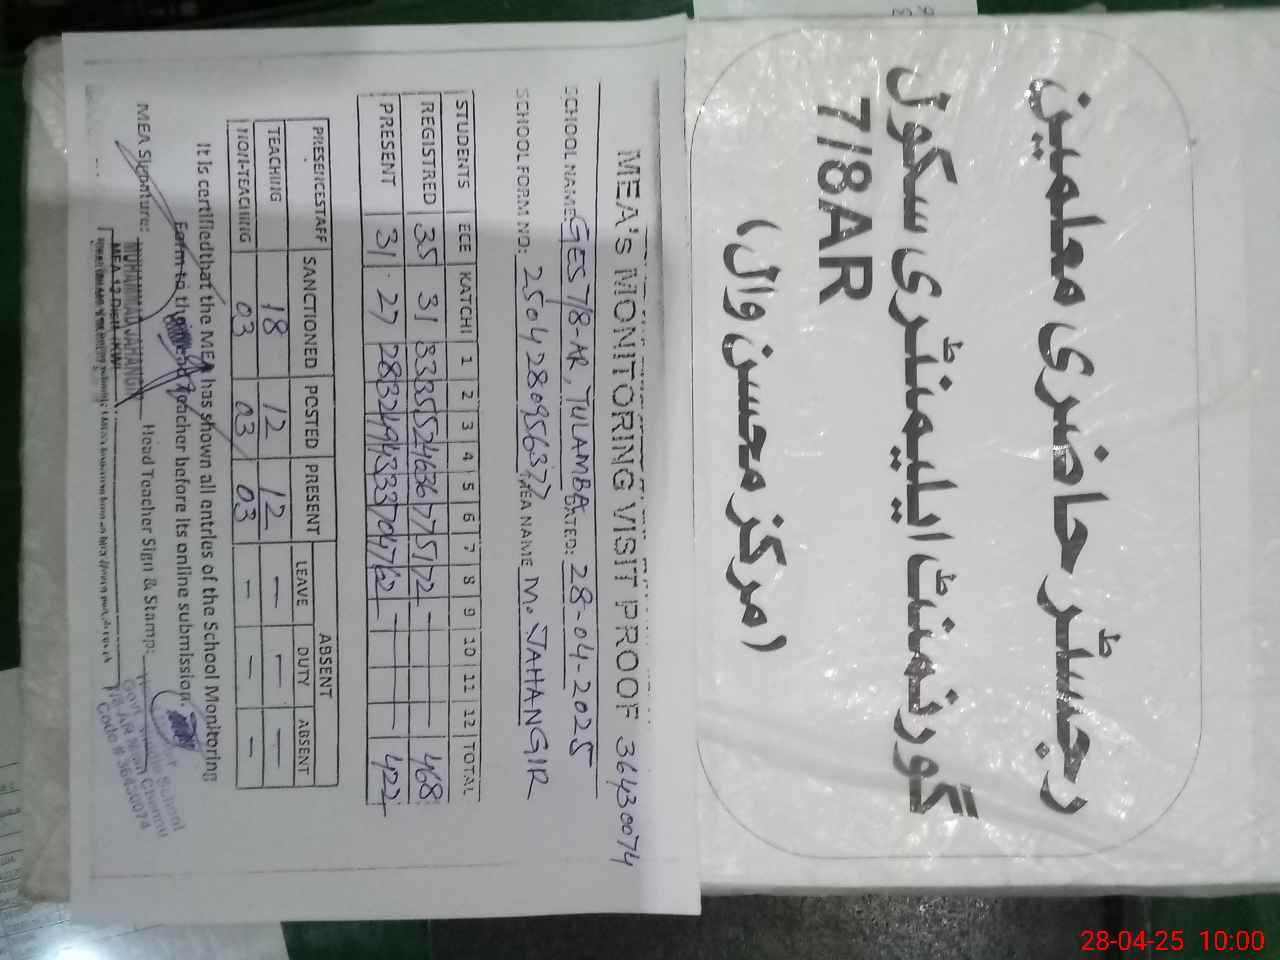 رجسٹر حاضری معلمین
گورنمنٹ ایلیمنٹری سکول
7/8AR
(مرکز محسن وال)
MEA's MONITORING VISIT PROOF 36430074
SCHOOL NAME: GES 7/8-AR, TULAMBA DATED: 28-04-2025
SCHOOL FORM NO: 2504280956377 MEA NAME M. JAHANGIR
STUDENTS ECE KATCHI 1 2 3 4 5 6 7 8 9 10 11 12 TOTAL
REGISTRED 35 31 33 35 52 46 36 77 51 72 - - - - 468
PRESENT 31 27 28 32 49 43 33 70 47 62 - - - - 422
PRESENCESTAFF SANCTIONED POSTED PRESENT ABSENT
LEAVE DUTY ABSENT
TEACHING 18 12 12 - - -
NON-TEACHING 03 03 03 - - -
It is certifiedthat the MEA has shown all entries of the School Monitoring
Form to the Head Teacher before its online submission.
MEA Signature: Head Teacher Sign & Stamp:
MUHAMMAD JAHANGIR
Code # 36430074
28-04-25 10:00